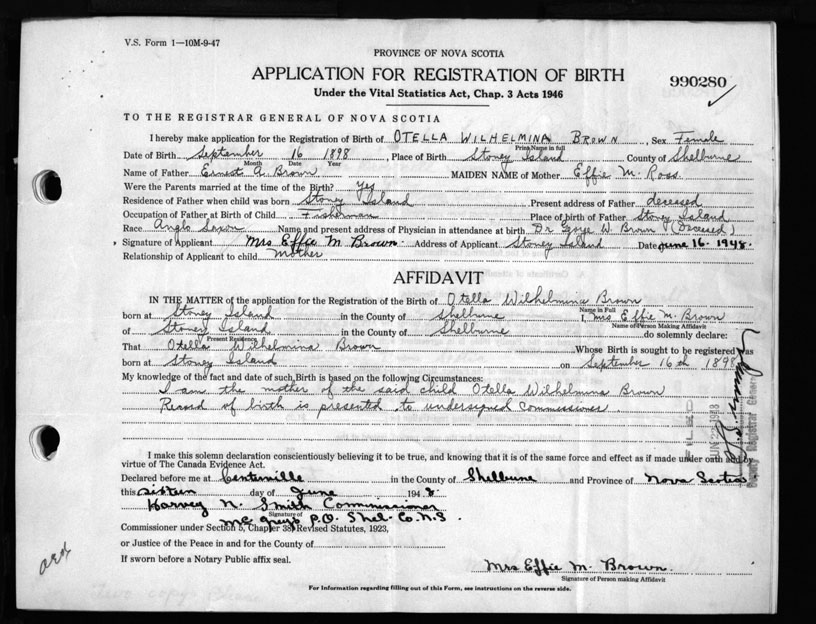 V.S. Form 1—10M-9-47
PROVINCE OF NOVA SCOTIA
APPLICATION FOR REGISTRATION OF BIRTH
990280
Under the Vital Statistics Act, Chap. 3 Acts 1946
TO THE REGISTRAR GENERAL OF NOVA SCOTIA
I hereby make application for the Registration of Birth of OTELLA WILHELMINA BROWN, Sex Female
Print Name in full
Date of Birth September 16 1898, Place of Birth Stoney Island County of Shelburne
Month Date Year
Name of Father Ernest A. Brown MAIDEN NAME of Mother Effie M. Ross
Were the Parents married at the time of the Birth? Yes
Residence of Father when child was born Stoney Island Present address of Father deceased
Occupation of Father at Birth of Child Fisherman Place of birth of Father Stoney Island
Race Anglo Saxon Name and present address of Physician in attendance at birth Dr George W. Brown (Deceased)
Signature of Applicant Mrs Effie M Brown. Address of Applicant Stoney Island Date June 16. 1948.
Relationship of Applicant to child mother
AFFIDAVIT
IN THE MATTER of the application for the Registration of the Birth of Otella Wilhelmina Brown
Name in Full
born at Stoney Island in the County of Shelburne I, Mrs Effie M. Brown
Name of Person Making Affidavit
of Stoney Island in the County of Shelburne do solemnly declare:
Present Residence
That Otella Wilhelmina Brown Whose Birth is sought to be registered was
born at Stoney Island on September 16th 1898
My knowledge of the fact and date of such Birth is based on the following Circumstances:
I am the mother of the said child Otella Wilhelmina Brown
Record of birth is presented to undersigned Commissioner
I make this solemn declaration conscientiously believing it to be true, and knowing that it is of the same force and effect as if made under oath and by
virtue of The Canada Evidence Act.
Declared before me at Centerville in the County of Shelburne and Province of Nova Scotia
this sixteen day of June 1948.
Harvey N. Smith Commissioner
Signature of
McGrays P.O. Shel. Co. N.S.
Commissioner under Section 5, Chapter 38, Revised Statutes, 1923,
or Justice of the Peace in and for the County of
If sworn before a Notary Public affix seal.
Mrs Effie M. Brown.
Signature of Person making Affidavit
For Information regarding filling out of this Form, see instructions on the reverse side.
FILED
Deputy Registrar General